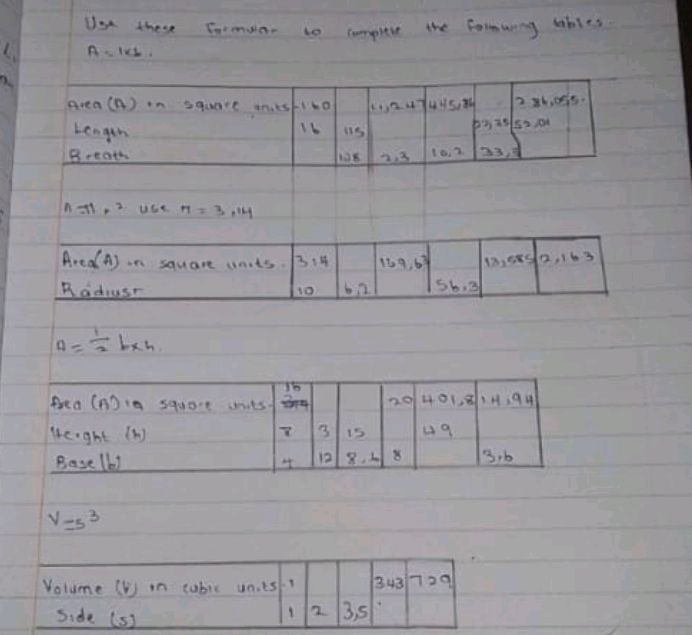 Use these Formular to complete the following tables.
A = l×b.
Area (A) in square units 160 11,247 445,86 286,055
Length 16 115 22,25 52,01
Breath 128 2,3 10,2 33,
A = π r² use π = 3,14
Area(A) in square units. 314 13,585 2,163
Radius r 10 6,2 56,3
A = ½ b×h.
Area (A) in square units 16 20 401,8 14,94
Height (h) 8 3 15 49
Base (b) 4 12 8,6 8 3,6
V = s³
Volume (V) in cubic units 1 343 729
Side (s) 1 2 3,5